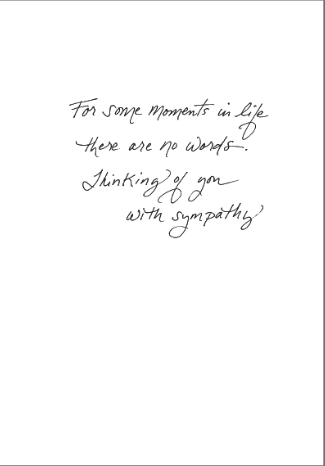 For some moments in life
there are no words.
Thinking of you
with sympathy